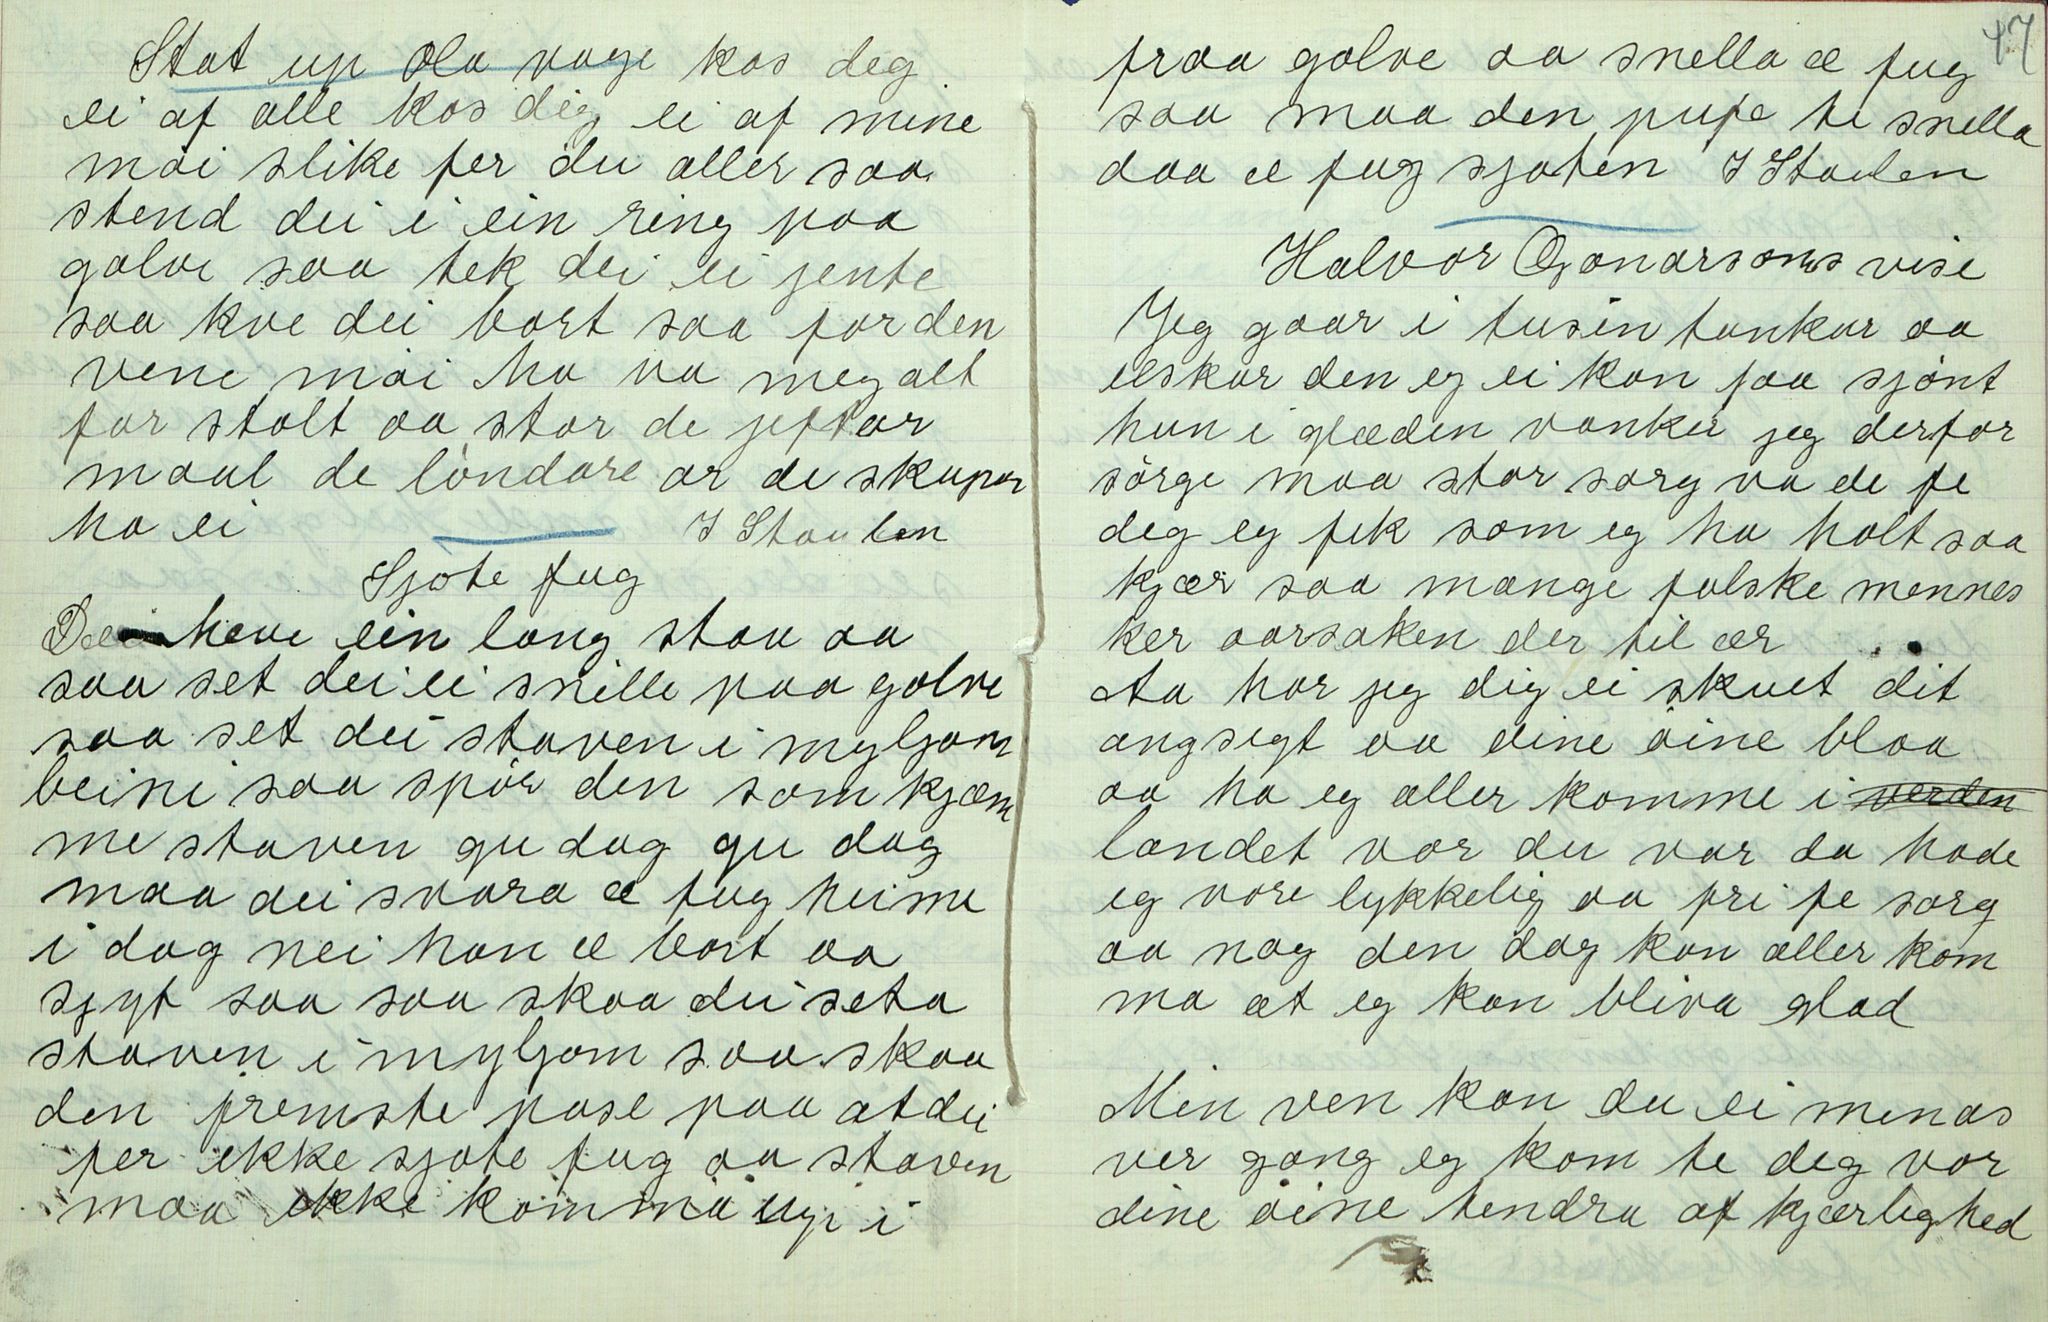 Stat up Ola vage kos deg
ei af alle kos dig ei af mine
møi slike fer du aller saa
stend dei i ein ring paa
golve saa tek dei ei jente
saa kve dei bort saa for den
vene møi ha va meg alt
for stolt aa stor de jeftar
maal de løndare ar de skaper
ha ei
I Staulen
Sjote fug
Dei heve ein lang stav aa
saa set dei ei snille paa golve
saa set dei staven i myljom
beini saa spør den som kjæm
me staven gu dag gu dag
maa dei svara æ fug heime
i dag nei han æ bort aa
sjyt saa saa skaa dei seta
staven i myljom saa skaa
den fremste pase paa at dei
fer ikke sjote fug aa staven
maa ikke komma up i
47
fraa golve aa snella æ fug
saa maa den pupe te snella
daa æ fug sjoten I Staulen
Halvor Gonarsons vise
Jeg gaar i tusin tankar aa
elskar den eg ei kan faa sjønt
hun i glæden vanker jeg derfor
sørge maa stor sorg va de fe
deg eg fek som eg ha holt saa
kjær saa mange falske mennes
ker aarsaken der til ær
Aa har jeg dig ei skuet dit
angsigt aa dine øine blaa
aa ha eg aller komme i verden
landet vor du var da hade
eg vore lykkelig aa fri fe sorg
aa nag den dag kan aller kom
ma at eg kan bliva glad
Min ven kan du ei minas
ver gang eg kom te deg vor
dine øine tendra af kjærlighed